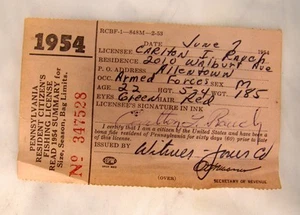 1954
PENNSYLVANIA
RESIDENT CITIZEN'S
FISHING LICENSE
READ 1954 SUMMARY for
Size, Season, Bag Limits.
No 347528
RCBF-1-848M-2-53
June 2 1954
LICENSEE Carlton F. Rauch
RESIDENCE 2010 Walbert Ave
P. O. ADDRESS Allentown
OCC. Armed Forces M
AGE 22 HGT. 5 7 WT. 185
EYES Green Red
LICENSEE'S SIGNATURE IN INK
I certify that I am a citizen of the United States and have been a
bona fide resident of Pennsylvania for sixty days (60) prior to date
hereon.
ISSUED BY
(OVER)
SECRETARY OF REVENUE.